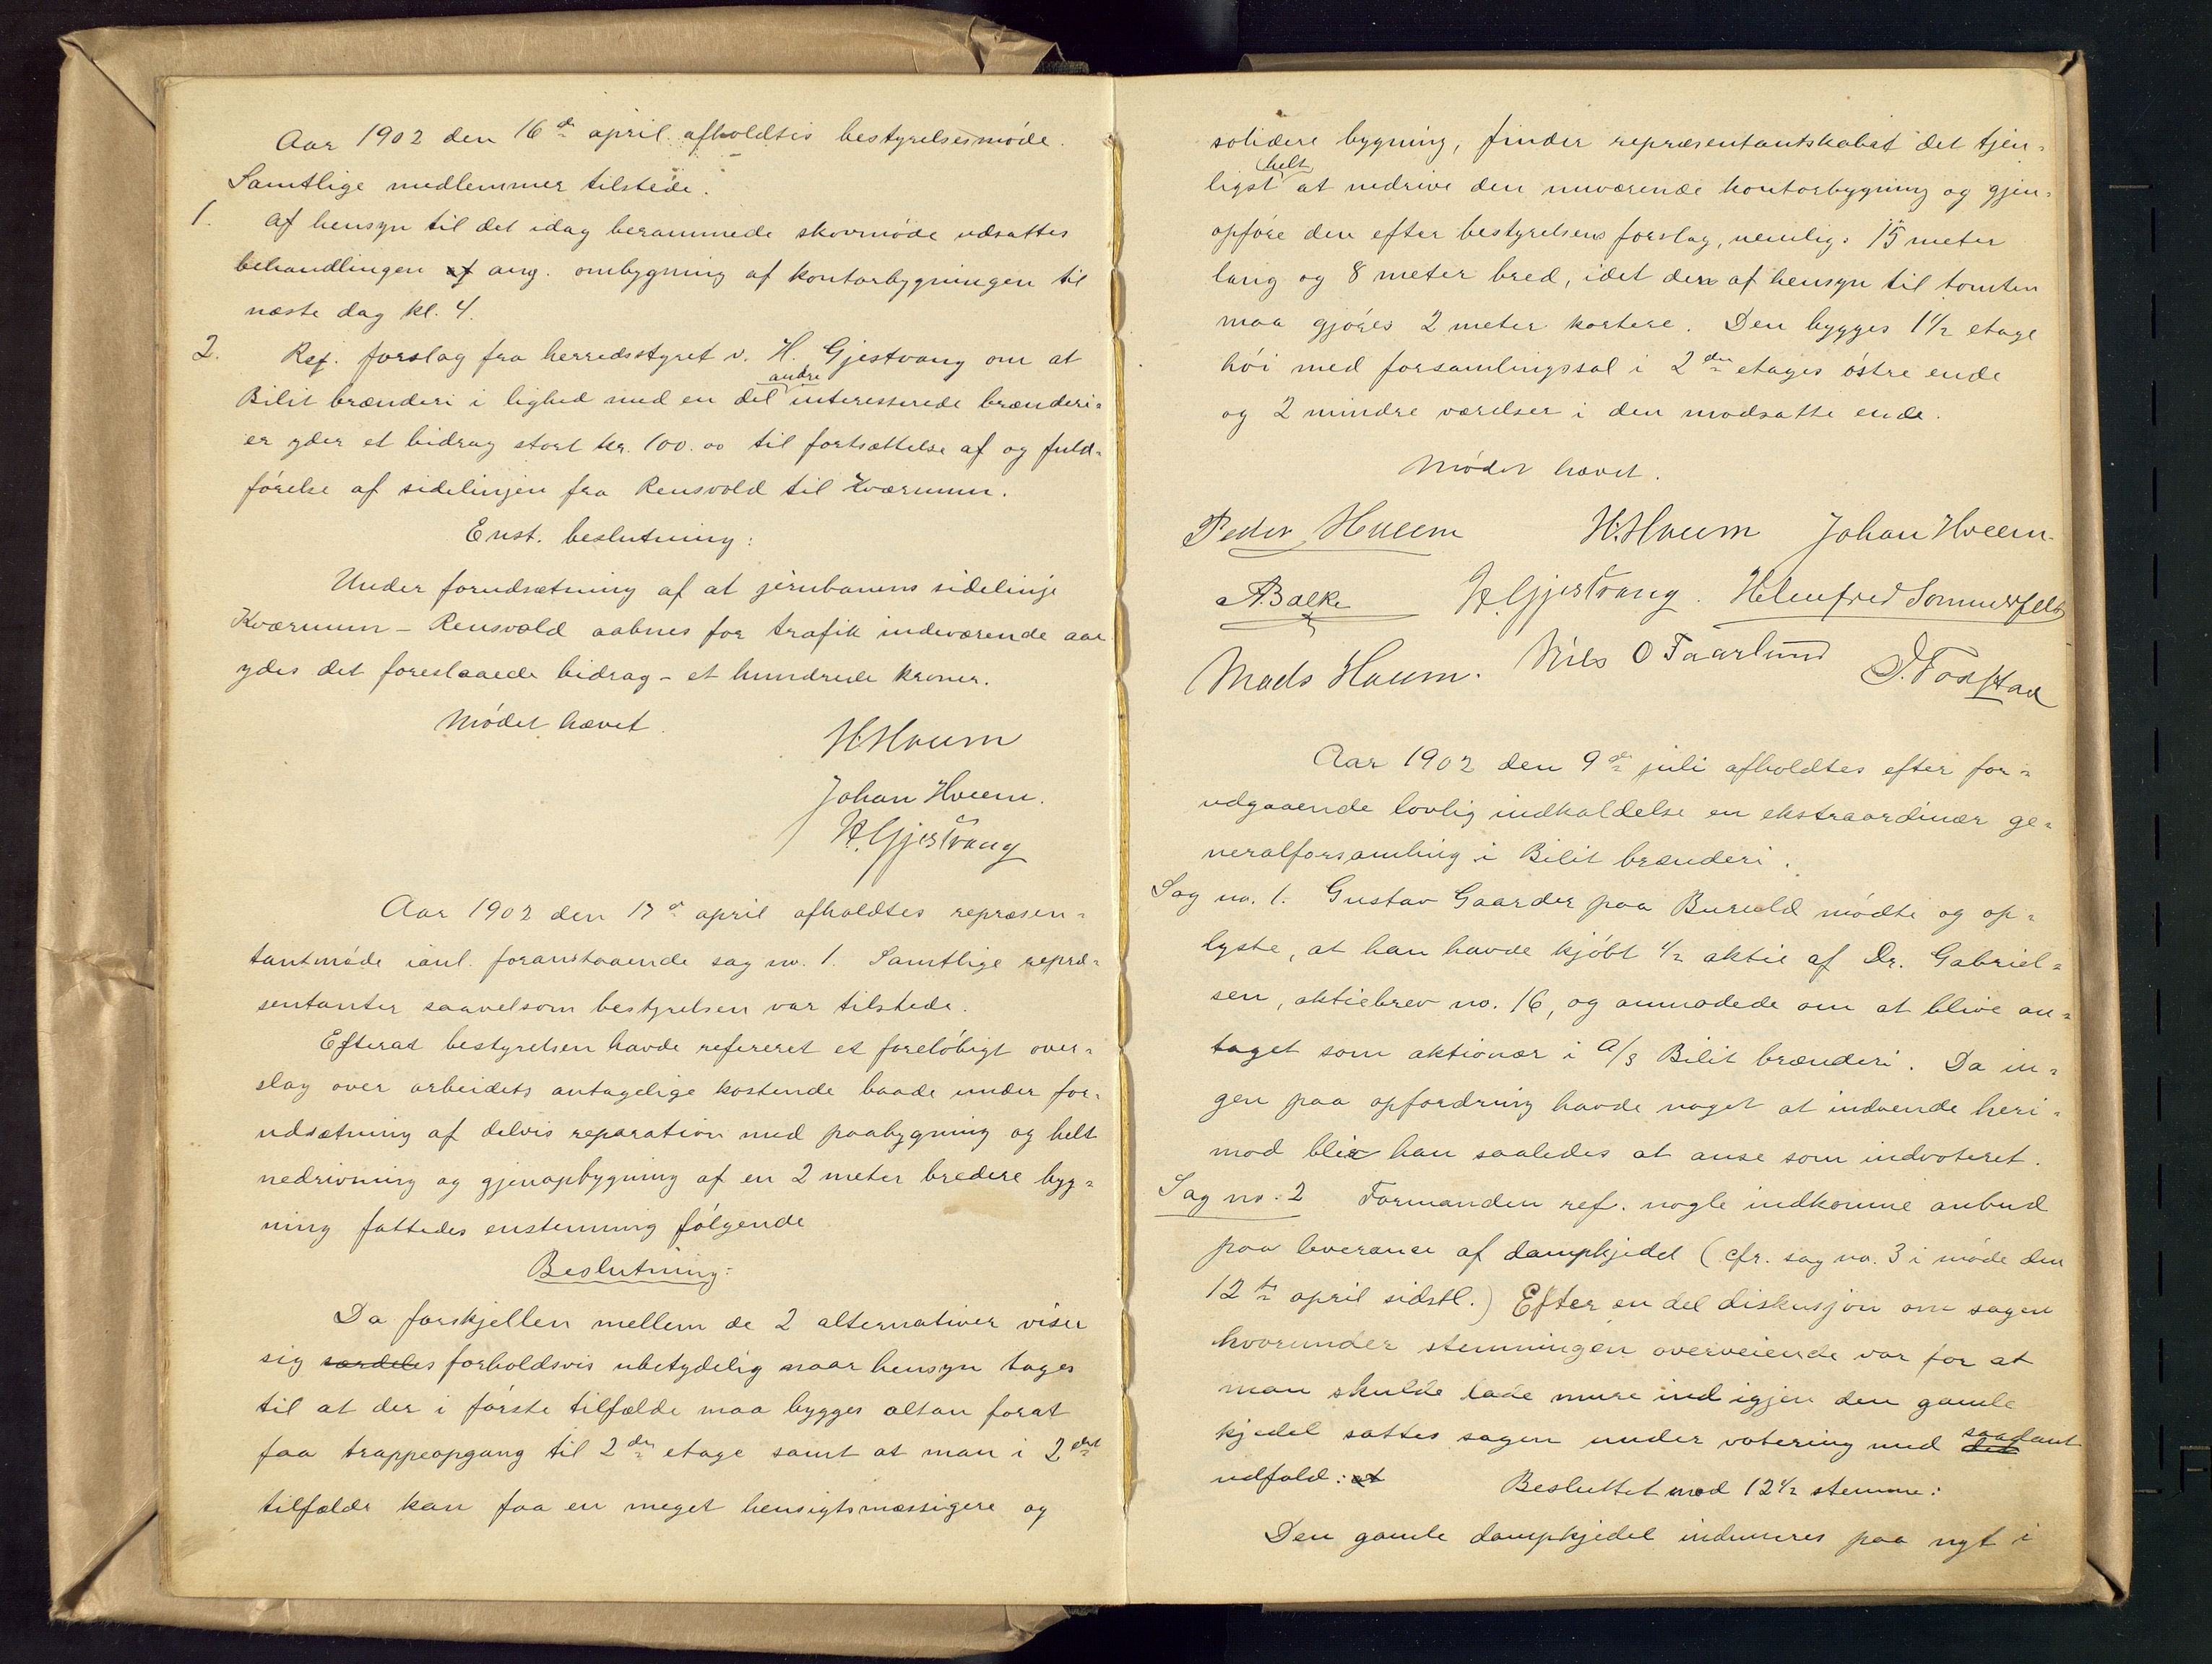 Aar 1902 den 16de april afholdtes bestyrelsesmøde.
Samtlige medlemmer tilstede.
1. Af hensyn til det idag berammede skovmøde udsattes
behandlingen af ang. ombygning af kontorbygningen til
næste dag kl. 4.
2. Ref. forslag fra herredsstyret v. H. Gjestvang om at
Bilit brænderi i lighed med en del andre interesserede brænderi=
er yder et bidrag stort kr. 100.00 til fortsættelse af og fuld=
førelse af sidelinjen fra Rensvold til Kværnum.
Enst. beslutning:
Under forudsætning af at jernbanens sidelinje
Kværnum – Rensvold aabnes for trafik indeværende aar
ydes det foreslaaede bidrag – et hundrede kroner.
Mødet hævet.
H. Hveem
Johan Hveem.
H. Gjestvang
Aar 1902 den 17de april afholdtes repræsen=
tantmøde ianl. foranstaaende sag no. 1. Samtlige repræ=
sentanter saavelsom bestyrelsen var tilstede.
Efterat bestyrelsen havde refereret et foreløbigt over=
slag over arbeidets antagelige kostende baade under for=
udsætning af delvis reparation med paabygning og helt
nedrivning og gjenopbygning af en 2 meter bredere byg=
ning fattedes enstemmig følgende
Beslutning:
Da forskjellen mellem de 2 alternativer viser
sig særdeles forholdsvis ubetydelig naar hensyn tages
til at der i første tilfælde maa bygges altan forat
faa trappeopgang til 2den etage samt at man i 2det
tilfælde kan faa en meget hensigtsmæssigere og
solidere bygning, finder repræsentantskabet det tjen=
ligst helt at nedrive den nuværende kontorbygning og gjen=
opføre den efter bestyrelsens forslag, nemlig: 15 meter
lang og 8 meter bred, idet den af hensyn til tomten
maa gjøres 2 meter kortere. Den bygges 1 1/2 etage
høi med forsamlingssal i 2den etages østre ende
og 2 mindre værelser i den modsatte ende.
Mødet hævet.
Peder Hveem H. Hveem Johan Hveem.
A Balke H. Gjestvang. Helmfred Sommerfeldt
Mads Hveem. Nils O Faarlund J. Fossstad
Aar 1902 den 9de juli afholdtes efter for=
udgaaende lovlig indkaldelse en ekstraordinær ge=
neralforsamling i Bilit brænderi.
Sag no. 1. Gustav Gaarder paa Burvold mødte og op=
lyste, at han havde kjøbt 1/2 aktie af Dr. Gabriel=
sen, aktiebrev no. 16, og anmodede om at blive an=
taget som aktionær i A/S Bilit brænderi. Da in=
gen paa opfordring havde noget at indvende heri=
mod blir han saaledes at anse som indvoteret.
Sag no. 2 Formanden ref. nogle indkomne anbud
paa leverance af dampkjedel (cfr. sag no. 3 i møde den
12te april sidstl.) Efter en del diskusjon om sagen
hvorunder stemningen overveiende var for at
man skulde lade mure ind igjen den gamle
kjedel sattes sagen under votering med det saadant
udfald: at Besluttet mod 12 1/2 stemme:
Den gamle dampkjedel indmures paa nyt i